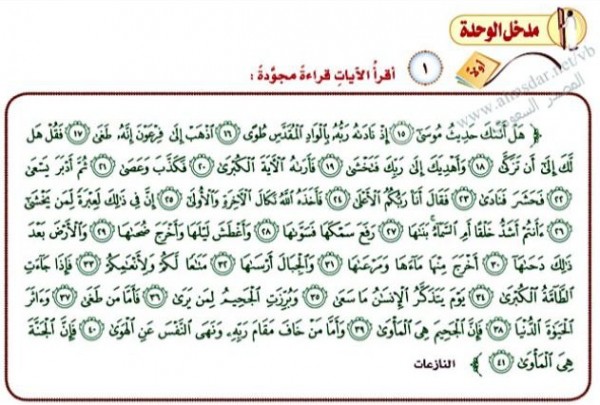 مدخل الوحدة
أولاً:
١ أقرأُ الآياتِ قراءةً مجوَّدةً :
﴿ هَلْ أَتَىٰكَ حَدِيثُ مُوسَىٰٓ ١٥ إِذْ نَادَىٰهُ رَبُّهُۥ بِٱلْوَادِ ٱلْمُقَدَّسِ طُوًى ١٦ ٱذْهَبْ إِلَىٰ فِرْعَوْنَ إِنَّهُۥ طَغَىٰ ١٧ فَقُلْ هَل
لَّكَ إِلَىٰٓ أَن تَزَكَّىٰ ١٨ وَأَهْدِيَكَ إِلَىٰ رَبِّكَ فَتَخْشَىٰ ١٩ فَأَرَىٰهُ ٱلْـَٔايَةَ ٱلْكُبْرَىٰ ٢٠ فَكَذَّبَ وَعَصَىٰ ٢١ ثُمَّ أَدْبَرَ يَسْعَىٰ
٢٢ فَحَشَرَ فَنَادَىٰ ٢٣ فَقَالَ أَنَا۠ رَبُّكُمُ ٱلْأَعْلَىٰ ٢٤ فَأَخَذَهُ ٱللَّهُ نَكَالَ ٱلْـَٔاخِرَةِ وَٱلْأُولَىٰٓ ٢٥ إِنَّ فِى ذَٰلِكَ لَعِبْرَةً لِّمَن يَخْشَىٰٓ
٢٦ ءَأَنتُمْ أَشَدُّ خَلْقًا أَمِ ٱلسَّمَآءُ ۚ بَنَىٰهَا ٢٧ رَفَعَ سَمْكَهَا فَسَوَّىٰهَا ٢٨ وَأَغْطَشَ لَيْلَهَا وَأَخْرَجَ ضُحَىٰهَا ٢٩ وَٱلْأَرْضَ بَعْدَ
ذَٰلِكَ دَحَىٰهَآ ٣٠ أَخْرَجَ مِنْهَا مَآءَهَا وَمَرْعَىٰهَا ٣١ وَٱلْجِبَالَ أَرْسَىٰهَا ٣٢ مَتَٰعًا لَّكُمْ وَلِأَنْعَٰمِكُمْ ٣٣ فَإِذَا جَآءَتِ
ٱلطَّآمَّةُ ٱلْكُبْرَىٰ ٣٤ يَوْمَ يَتَذَكَّرُ ٱلْإِنسَٰنُ مَا سَعَىٰ ٣٥ وَبُرِّزَتِ ٱلْجَحِيمُ لِمَن يَرَىٰ ٣٦ فَأَمَّا مَن طَغَىٰ ٣٧ وَءَاثَرَ
ٱلْحَيَوٰةَ ٱلدُّنْيَا ٣٨ فَإِنَّ ٱلْجَحِيمَ هِىَ ٱلْمَأْوَىٰ ٣٩ وَأَمَّا مَنْ خَافَ مَقَامَ رَبِّهِۦ وَنَهَى ٱلنَّفْسَ عَنِ ٱلْهَوَىٰ ٤٠ فَإِنَّ ٱلْجَنَّةَ
هِىَ ٱلْمَأْوَىٰ ٤١ ﴾ النازعات